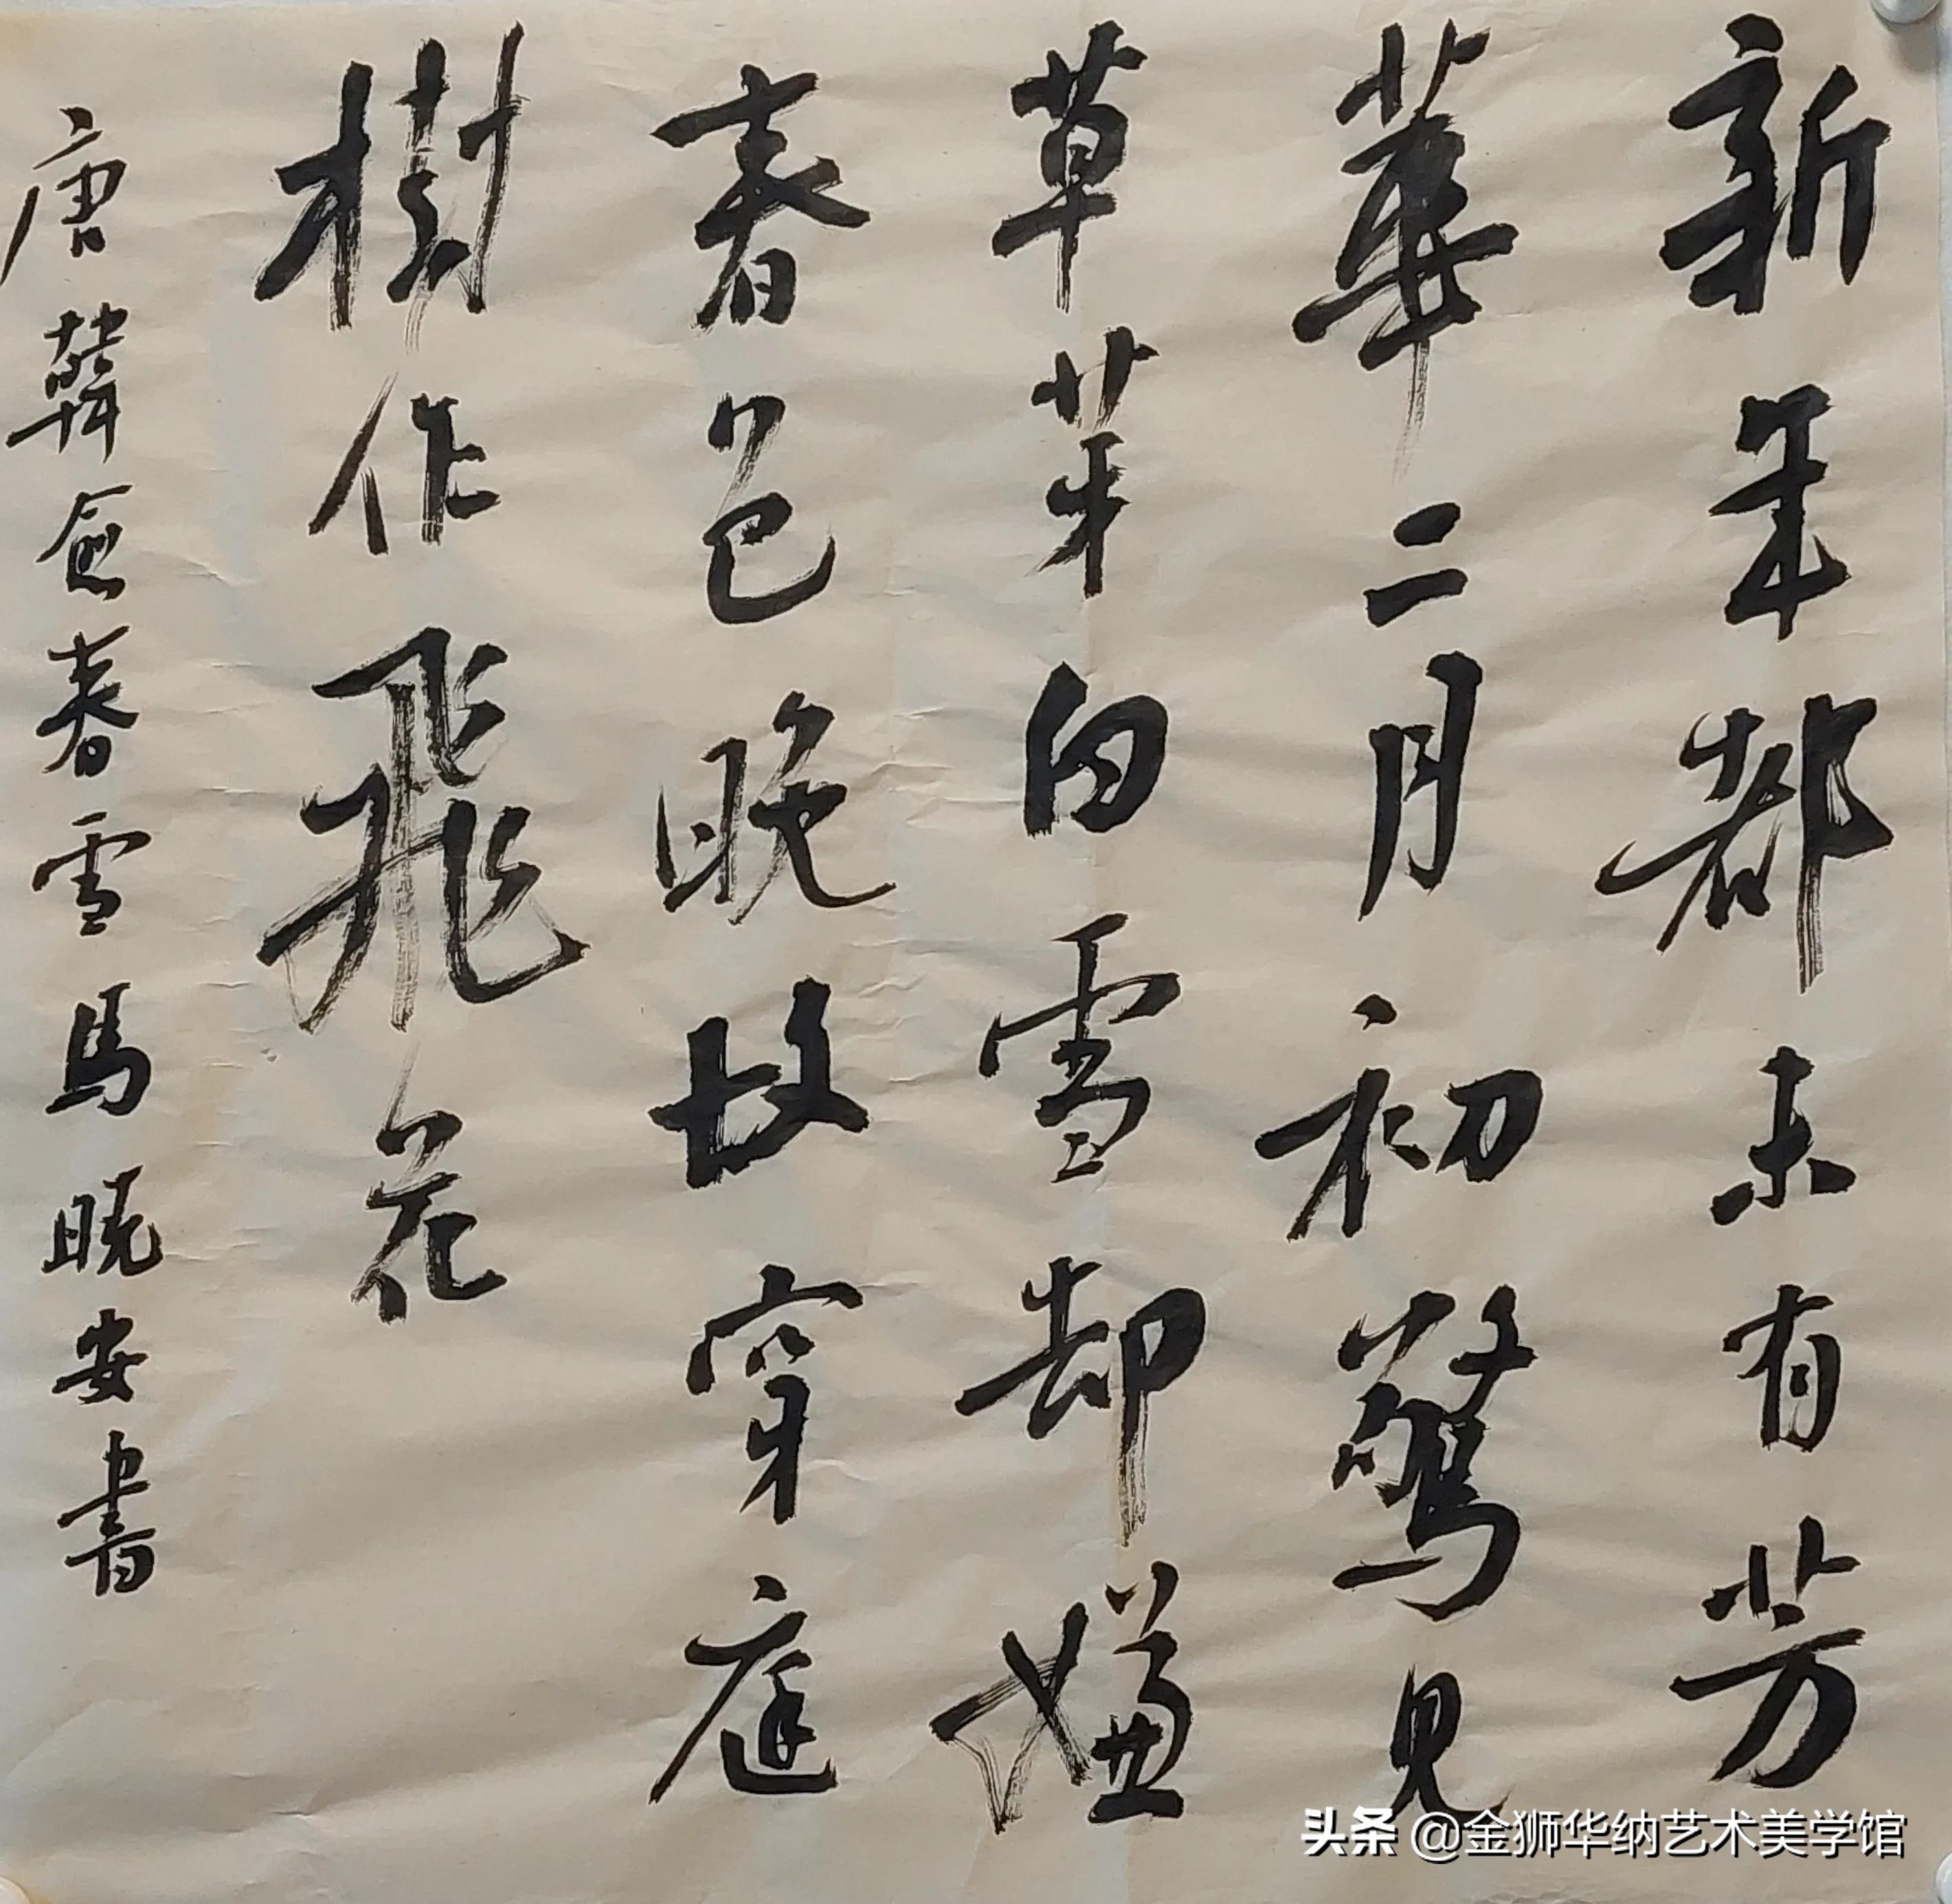 新年都未有芳
華二月初驚見
草芽白雪却嫌
春色晚故穿庭
樹作飛花
唐韓愈春雪馬曉安書
头条 @金狮华纳艺术美学馆